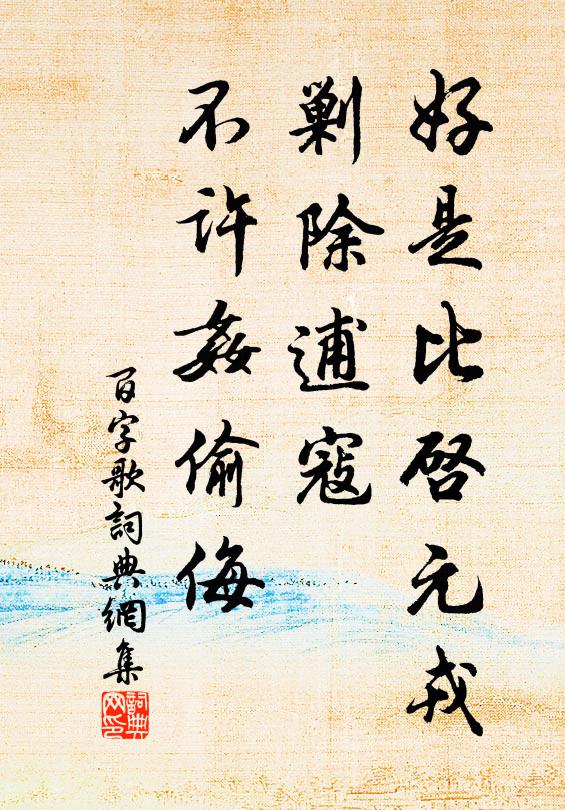 好是比啓元戎
剿除逋寇
不許姦偷侮
百字歌詞典網集
詞典
网印